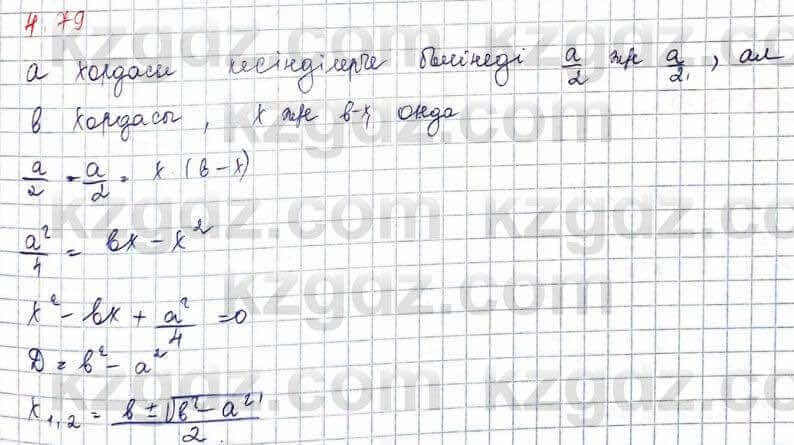 4.79
а хордасы кесінділерге бөлінеді a/2 және a/2, ал
в хордасы, х және в-х, онда
a/2 · a/2 = x · (в - x)
a²/4 = вx - x²
x² - вx + a²/4 = 0
D = в² - a²
x₁,₂ = (в ± √(в² - a²))/2
kzgaz.com